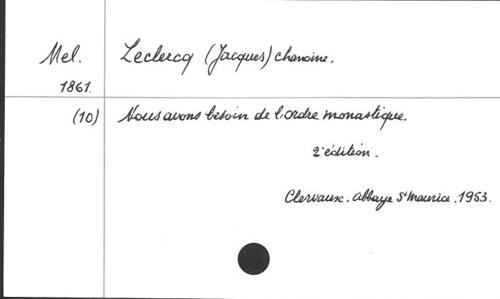 Mel. Leclercq (Jacques) chanoine.
1861.
(10) Nous avons besoin de l'ordre monastique.
2e édition.
Clervaux. Abbaye St Maurice. 1953.